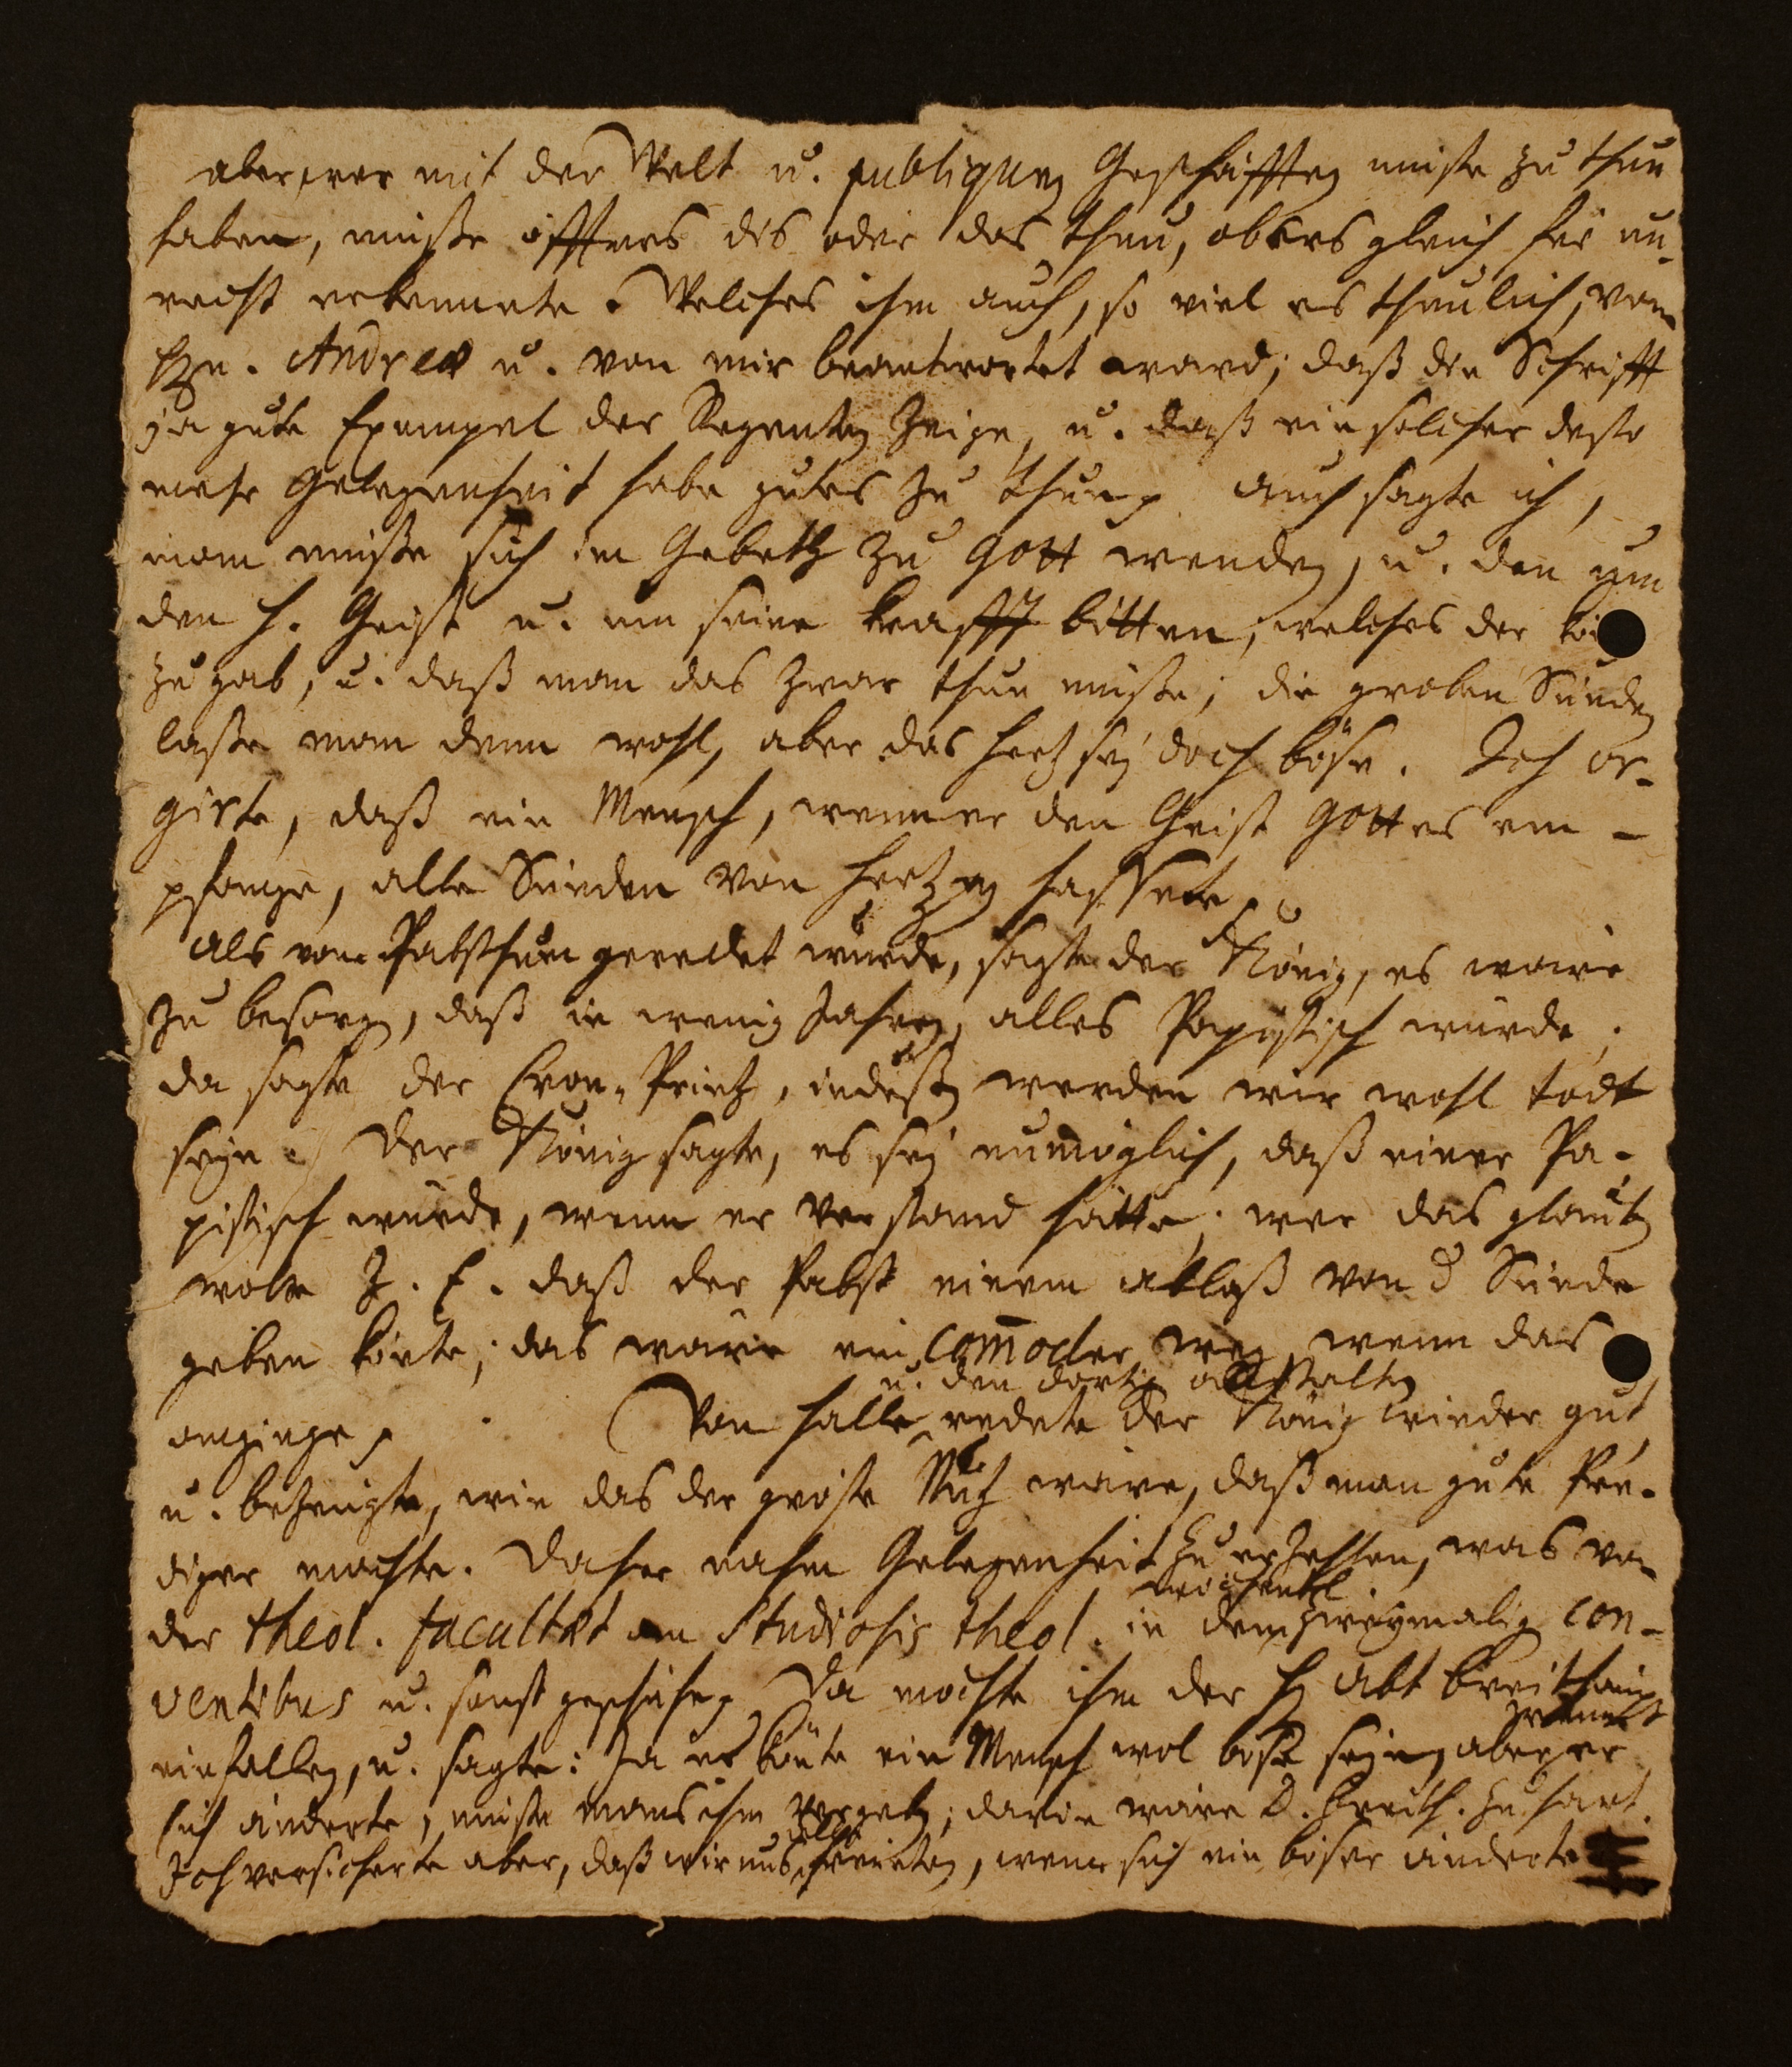 aber wer mit der Welt u. publiquen Geschäfften müste zu thun
haben, müste öffters dis oder das thun, ob ers gleich für un-
recht erkennete. Welches ihm auch, so viel es thunlich, von
Hn. Andreæ u. von mir beantwortet ward; daß die Schrifft
ja gute Exempel der Regenten zeige, u. daß ein solcher desto
mehr Gelegenheit habe gutes zu thun. auch sagte ich,
man müste sich im Gebeth zu Gott wenden, u. den um
den H. Geist u. um seine krafft bitten, welches der
zu gab, u. daß man das zwar thun müste; die groben Sünden
laße man denn wohl, aber das Hertz sey doch böse. Ich ur-
girte, daß ein Mensch, wenn er den Geist Gottes em-
pfange, alle Sünden von Hertzen hassete.
Als vom Pabsthum geredet wurde, sagte der König, es wäre
zu besorgen, daß in wenig Jahren alles Papistisch würde;
da sagte der Cron-Printz, indeßen werden wir wohl todt
seyn. Der König sagte, es sey unmöglich, daß einer Pa-
pistisch würde, wenn er verstand hätte; wer das glauben
wolte Z. E. daß der Pabst einem ablaß von d Sünde
geben könte; das wäre ein com̄oder weg, wenn das
u. den dortigen anstalten
anginge. Von Halle redete der König wieder gut
u. bezeugte, wie das der gröste Nutz wäre, daß man gute Pre-
diger machte. Daher nahm Gelegenheit zu erzehlen, was von
wöchentl.
der theol. facultæt an Studiosis theol. in dem zweymaligen con-
ventibus u. sonst geschehe. Da mochte ihm der H. Abt Breithaupt
einfallen, u. sagte: Ja es könte ein Mensch wol böse seyn, aber er
sich änderte, müste mans ihm vergeben; darin wäre D. Breith. zu hart.
Ich versicherte aber, daß wir uns freueten, wenn sich ein böser änderte